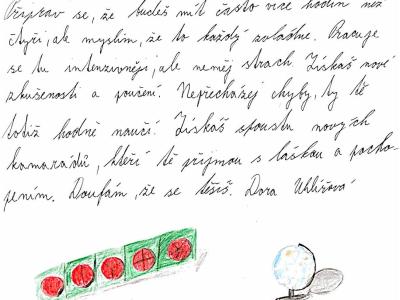 Připrav se, že budeš mít často více hodin než
čtyři, ale myslím, že to každý zvládne. Pracuje
se tu intenzivněji, ale neměj strach. Získáš nové
zkušenosti a poučení. Nepřecházej chyby, ty tě
totiž hodně naučí. Získáš spoustu nových
kamarádů, kteří tě přijmou s láskou a pocho-
pením. Doufám, že se těšíš. Dora Uhlířová